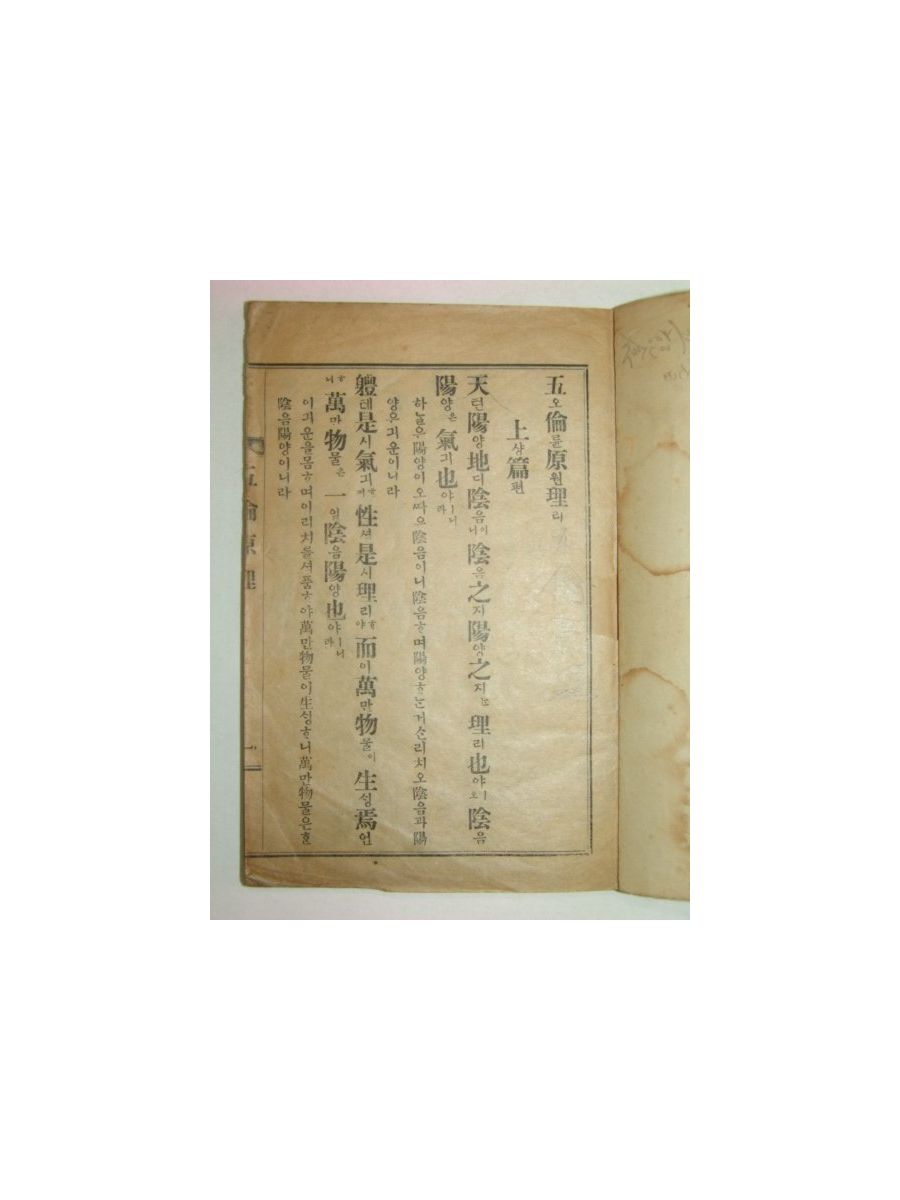 五오倫륜原원理리
上샹篇편
天텬陽양地디陰음이니陰음之지陽양之지는理리也야ㅣ오陰음
陽양은氣긔也야ㅣ니라
하ᄂᆞᆯ은陽양이오ᄯᅡ은陰음이니陰음ᄒᆞ며陽양ᄒᆞᄂᆞᆫ거슨리치오陰음과陽
양은긔운이니라
軆톄是시氣긔ᄒᆞ며性셩是시理리ᄒᆞ야而이萬만物물이生ᄉᆡᆼ焉언
ᄒᆞ니萬만物물은一일陰음陽양也야ㅣ니라
이긔운을몸ᄒᆞ며이리치를셔품ᄒᆞ야萬만物물이生ᄉᆡᆼᄒᆞ니萬만物물은ᄒᆞᆫ
陰음陽양이니라
五倫原理